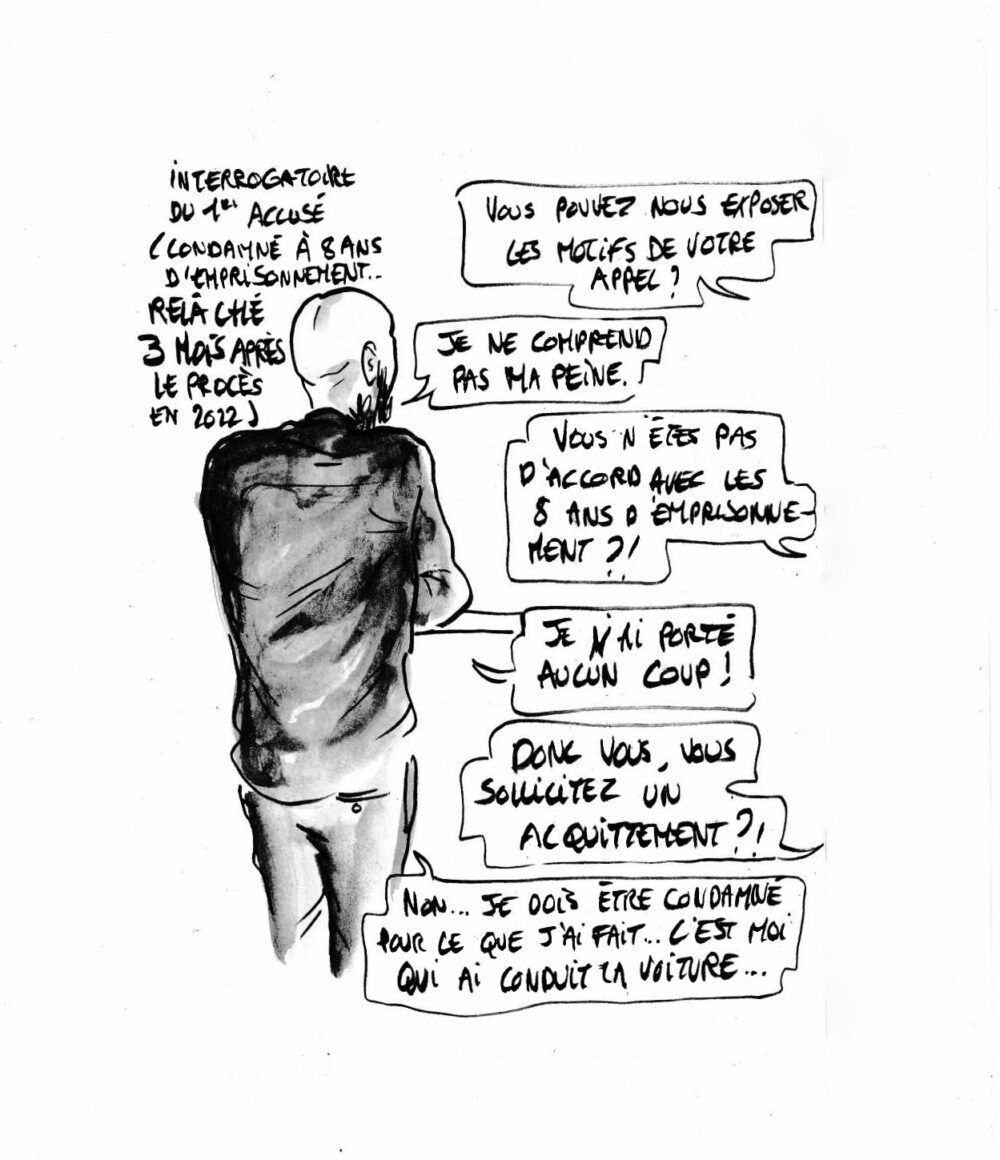 INTERROGATOIRE
DU 1ER ACCUSÉ
(CONDAMNÉ À 8 ANS
D'EMPRISONNEMENT..
RELÂCHÉ
3 MOIS APRÈS
LE PROCÈS
EN 2022)
VOUS POUVEZ NOUS EXPOSER
LES MOTIFS DE VOTRE
APPEL ?
JE NE COMPREND
PAS MA PEINE.
VOUS N'ÊTES PAS
D'ACCORD AVEC LES
8 ANS D'EMPRISONNE-
MENT ?!
JE N'AI PORTÉ
AUCUN COUP !
DONC VOUS, VOUS
SOLLICITEZ UN
ACQUITTEMENT ?!
NON... JE DOIS ÊTRE CONDAMNÉ
POUR CE QUE J'AI FAIT... C'EST MOI
QUI AI CONDUIT LA VOITURE...